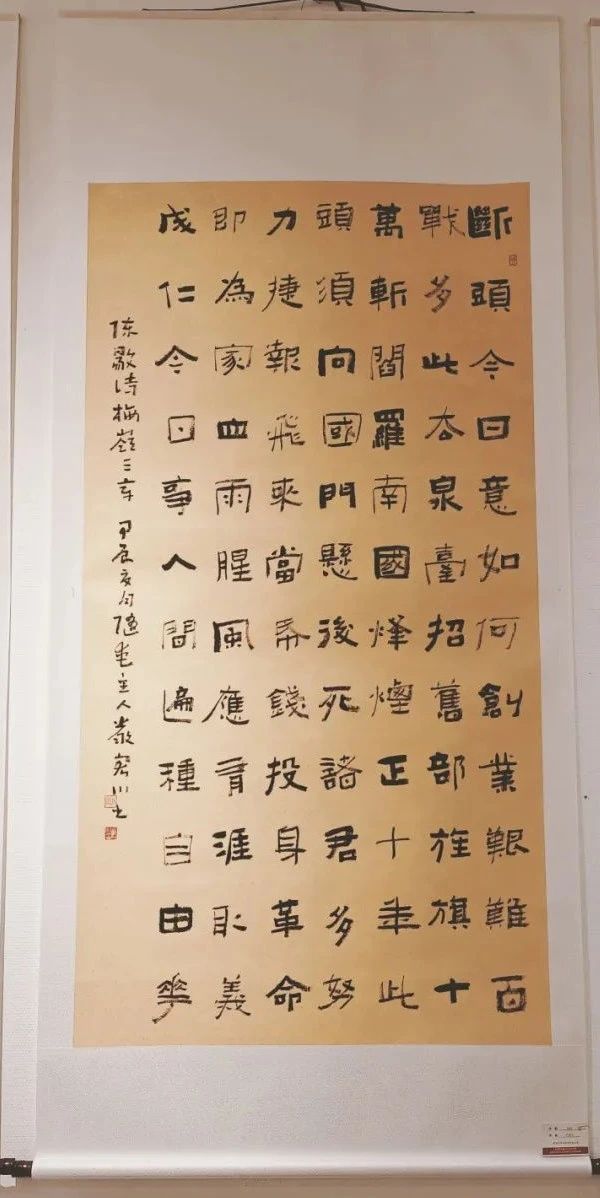 斷頭今日意如何創業艱難百
戰多此去泉臺招舊部旌旗十
萬斬閻羅南國烽煙正十年此
頭須向國門懸後死諸君多努
力捷報飛來當帋錢投身革命
即為家血雨腥風應有涯取義
成仁今日事人間遍種自由花
陈毅诗梅嶺三章 甲辰夏月 主人